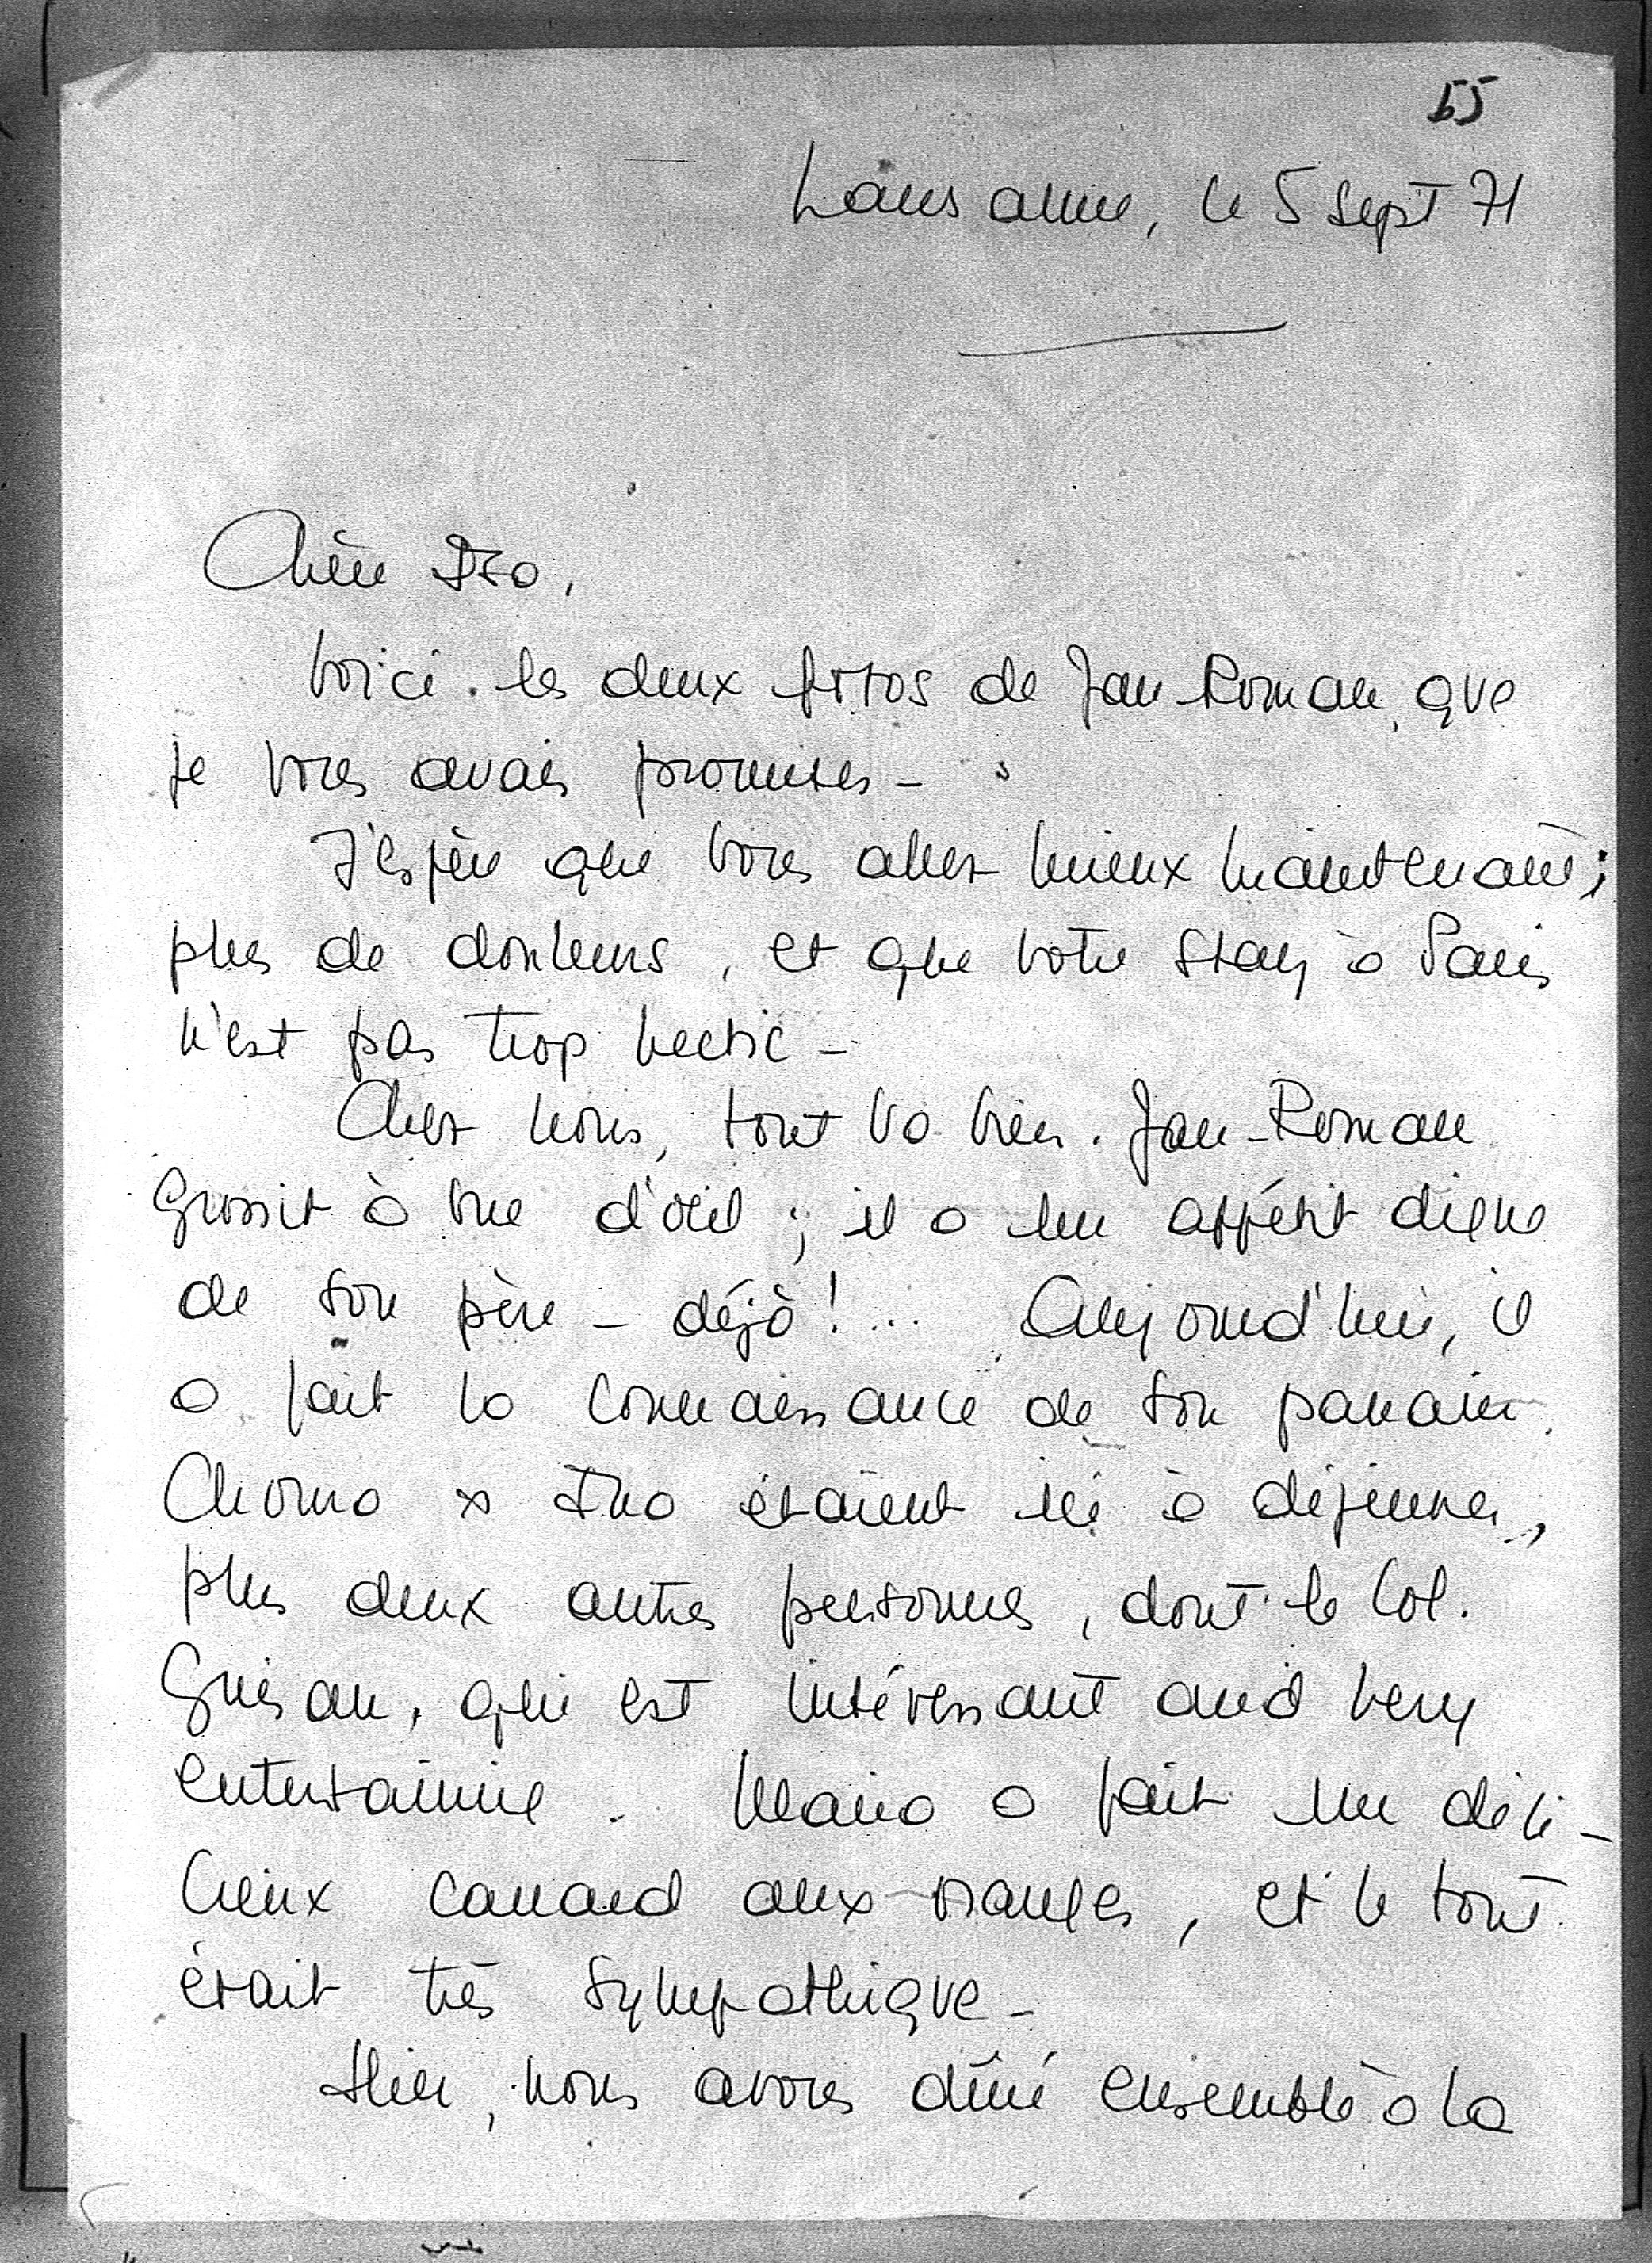 55
Lausanne, le 5 Sept 71
Chère Iso,
Voici les deux fotos de Jan-Roman, que
je vous avais promises -
J'espère que vous allez mieux maintenant;
plus de douleurs, et que votre stay à Paris
n'est pas trop hectic -
Chez nous, tout va bien. Jan-Roman
grossit à vue d'œil ; il a un appétit digne
de son père - déjà!... Aujourd'hui, il
a fait la connaissance de son parrain.
étaient ici à déjeuner,
plus deux autres personnes, dont le Col.
Guisan, qui est intéressant and very
entertaining. Mario a fait un déli-
cieux canard aux oranges, et le tout
était très sympathique -
Hier, nous avons dîné ensemble à la